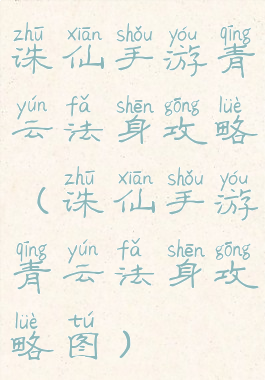 zhū xiān shǒu yóu qīng
诛仙手游青
yún fǎ shēn gōng lüè
云法身攻略
zhū xiān shǒu yóu
(诛仙手游
qīng yún fǎ shēn gōng
青云法身攻
lüè tú
略图)